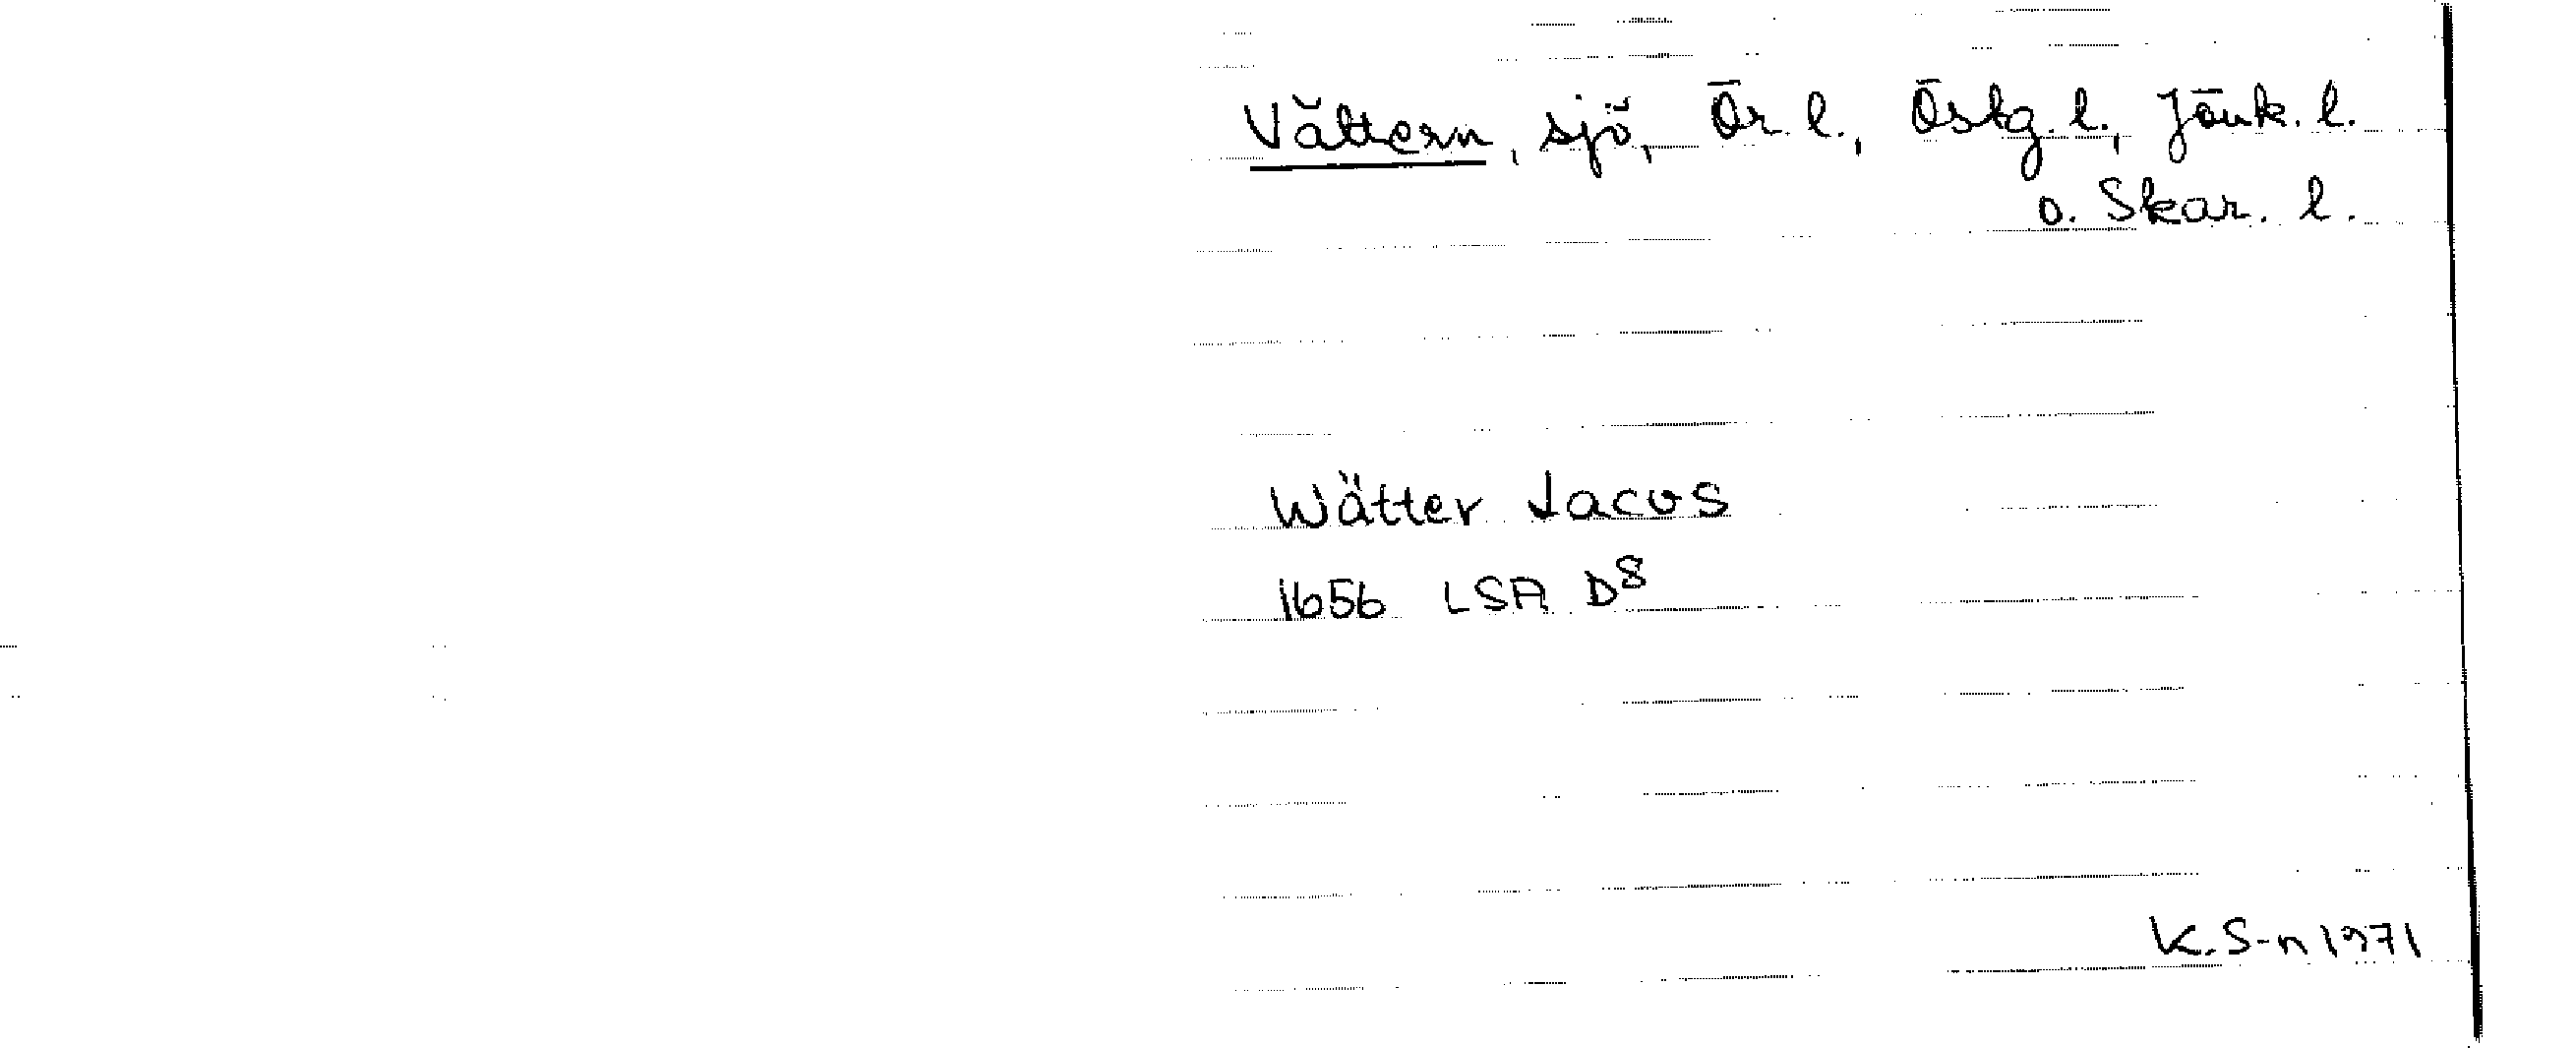 Vättern, sjö, Ör. l., Östg. l., Jönk. l.
o. Skar. l.
Wätter Lacus
1656 LSA D8
K. S-n 1971